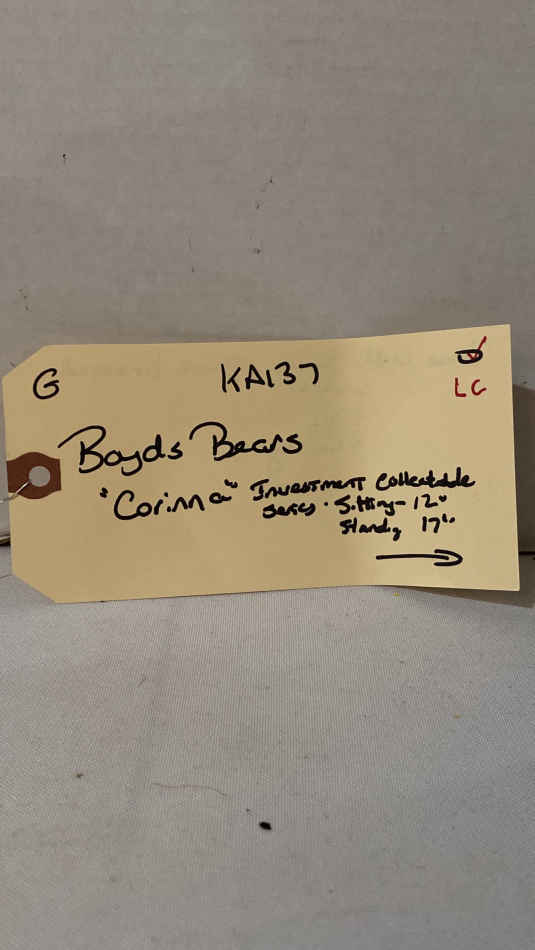 G KA137
LG
Boyds Bears
"Corinna" Investment Collectable
Series · Sitting - 12"
Standing 17"